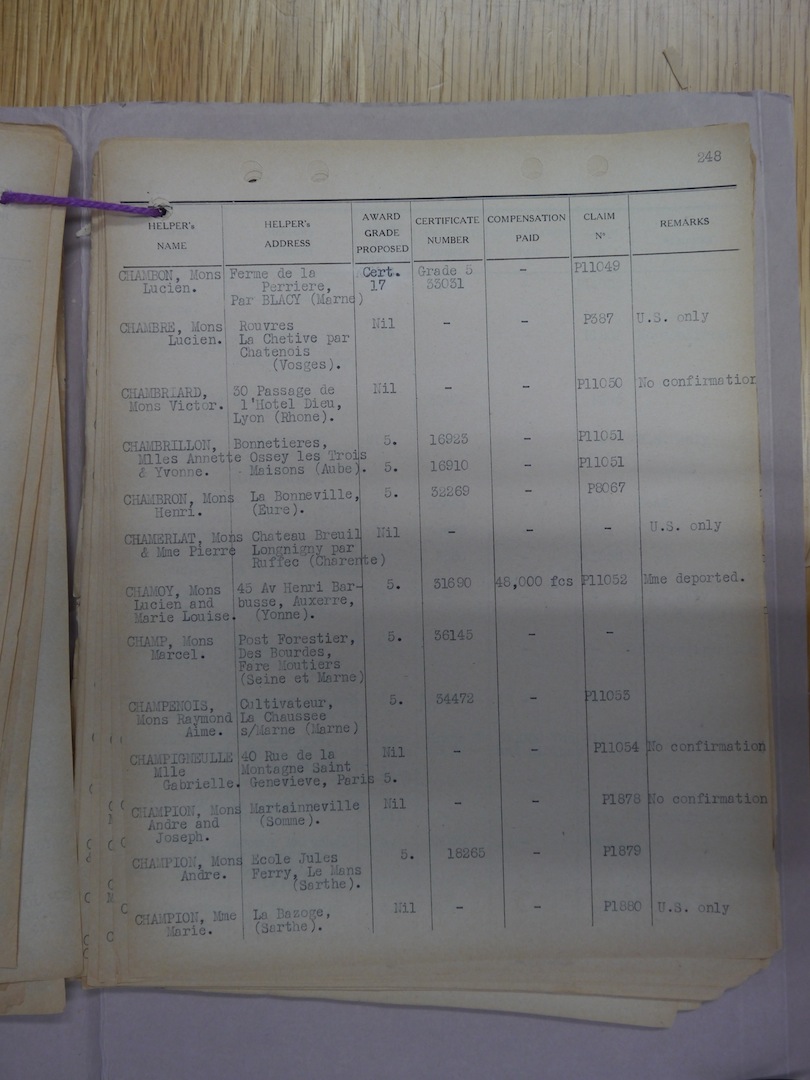 248
HELPER's NAME | HELPER's ADDRESS | AWARD GRADE PROPOSED | CERTIFICATE NUMBER | COMPENSATION PAID | CLAIM No | REMARKS
CHAMBON, Mons Ferme de la Cert. Grade 5 - P11049
Lucien. Perriere, 17 33031
Par BLACY (Marne)
CHAMBRE, Mons Rouvres Nil - - P387 U.S. only
Lucien. La Chetive par
Chatenois
(Vosges).
CHAMBRIARD, 30 Passage de Nil - - P11050 No confirmation
Mons Victor. l'Hotel Dieu,
Lyon (Rhone).
CHAMBRILLON, Bonnetieres, 5. 16923 - P11051
Mlles Annette Ossey les Trois
& Yvonne. Maisons (Aube). 5. 16910 - P11051
CHAMBRON, Mons La Bonneville, 5. 32269 - P8067
Henri. (Eure).
CHAMERLAT, Mons Chateau Breuil Nil - - - U.S. only
& Mme Pierre Longnigny par
Ruffec (Charente)
CHAMOY, Mons 45 Av Henri Bar- 5. 31690 48,000 fcs P11052 Mme deported.
Lucien and busse, Auxerre,
Marie Louise. (Yonne).
CHAMP, Mons Post Forestier, 5. 36145 - -
Marcel. Des Bourdes,
Fare Moutiers
(Seine et Marne)
CHAMPENOIS, Cultivateur, 5. 34472 - P11053
Mons Raymond La Chaussee
Aime. s/Marne (Marne)
CHAMPIGNEULLE 40 Rue de la Nil - - P11054 No confirmation
Mlle Montagne Saint
Gabrielle. Genevieve, Paris 5.
CHAMPION, Mons Martainneville Nil - - P1878 No confirmation
Andre and (Somme).
Joseph.
CHAMPION, Mons Ecole Jules 5. 18265 - P1879
Andre. Ferry, Le Mans
(Sarthe).
CHAMPION, Mme La Bazoge, Nil - - P1880 U.S. only
Marie. (Sarthe).